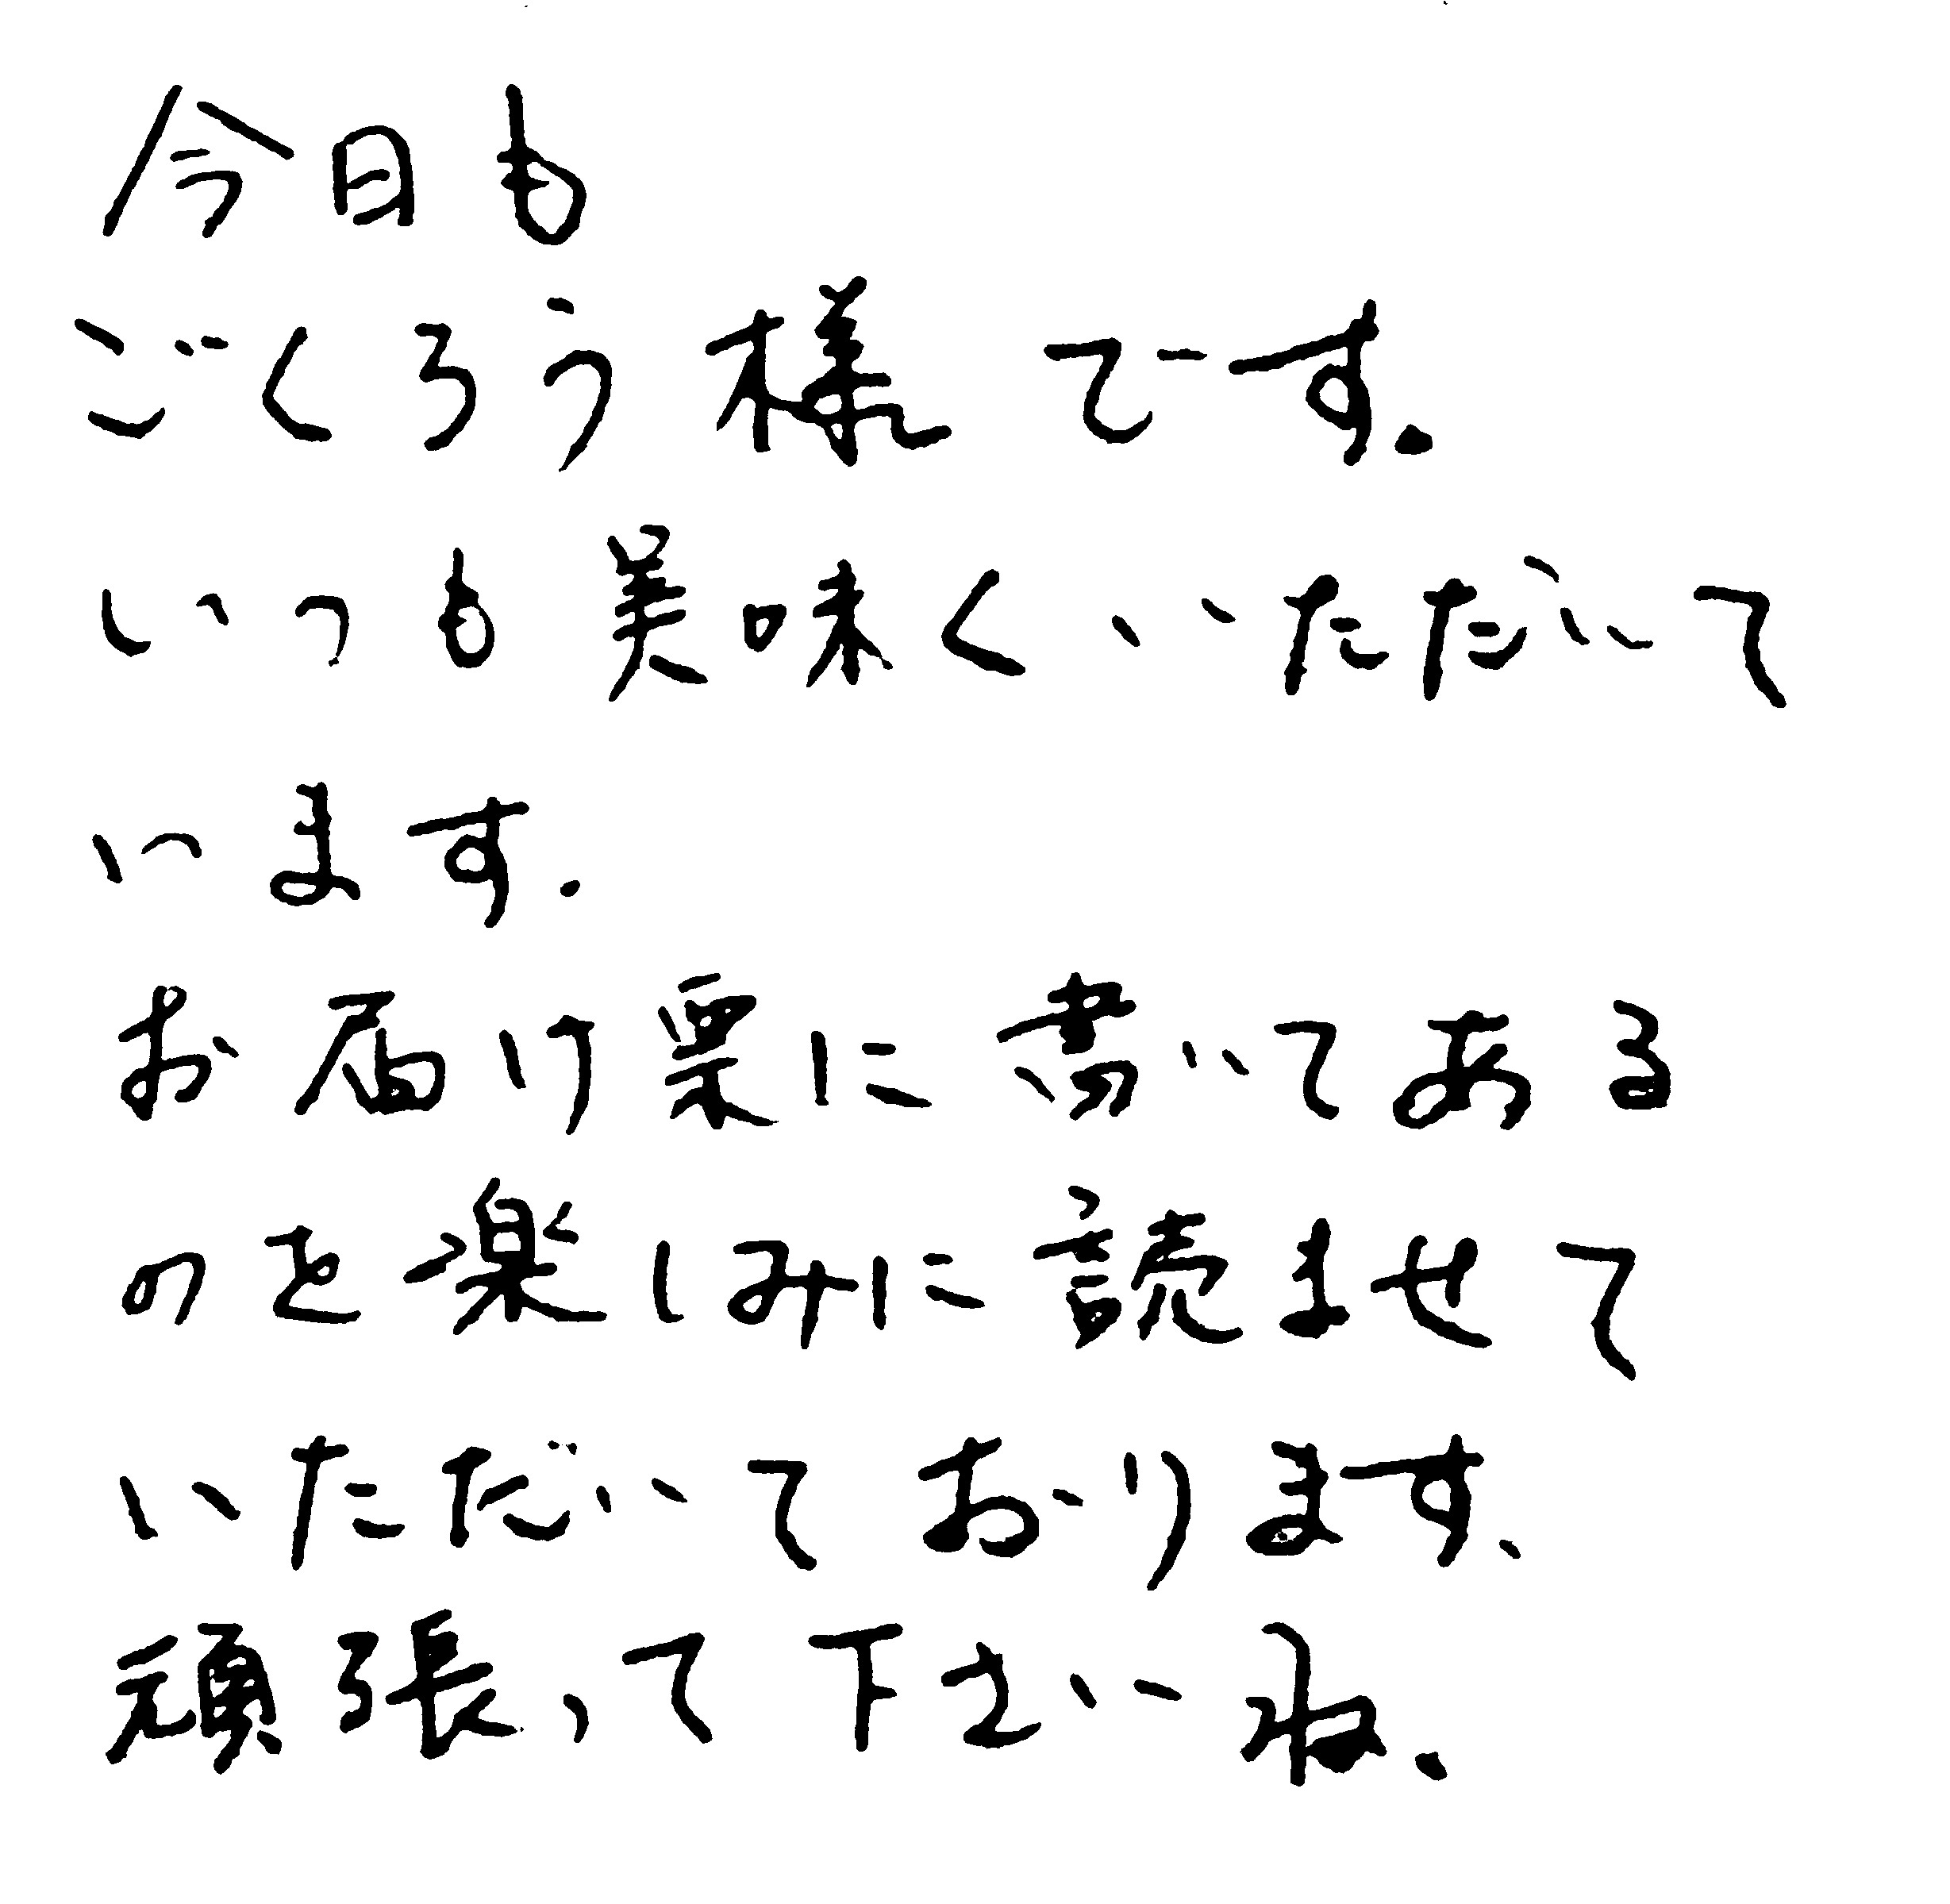 今日も
ごくろう様です.
いつも美味くいただいて
います.
お届け票に書いてある
のを楽しみに読ませて
いただいております.
頑張って下さいね.